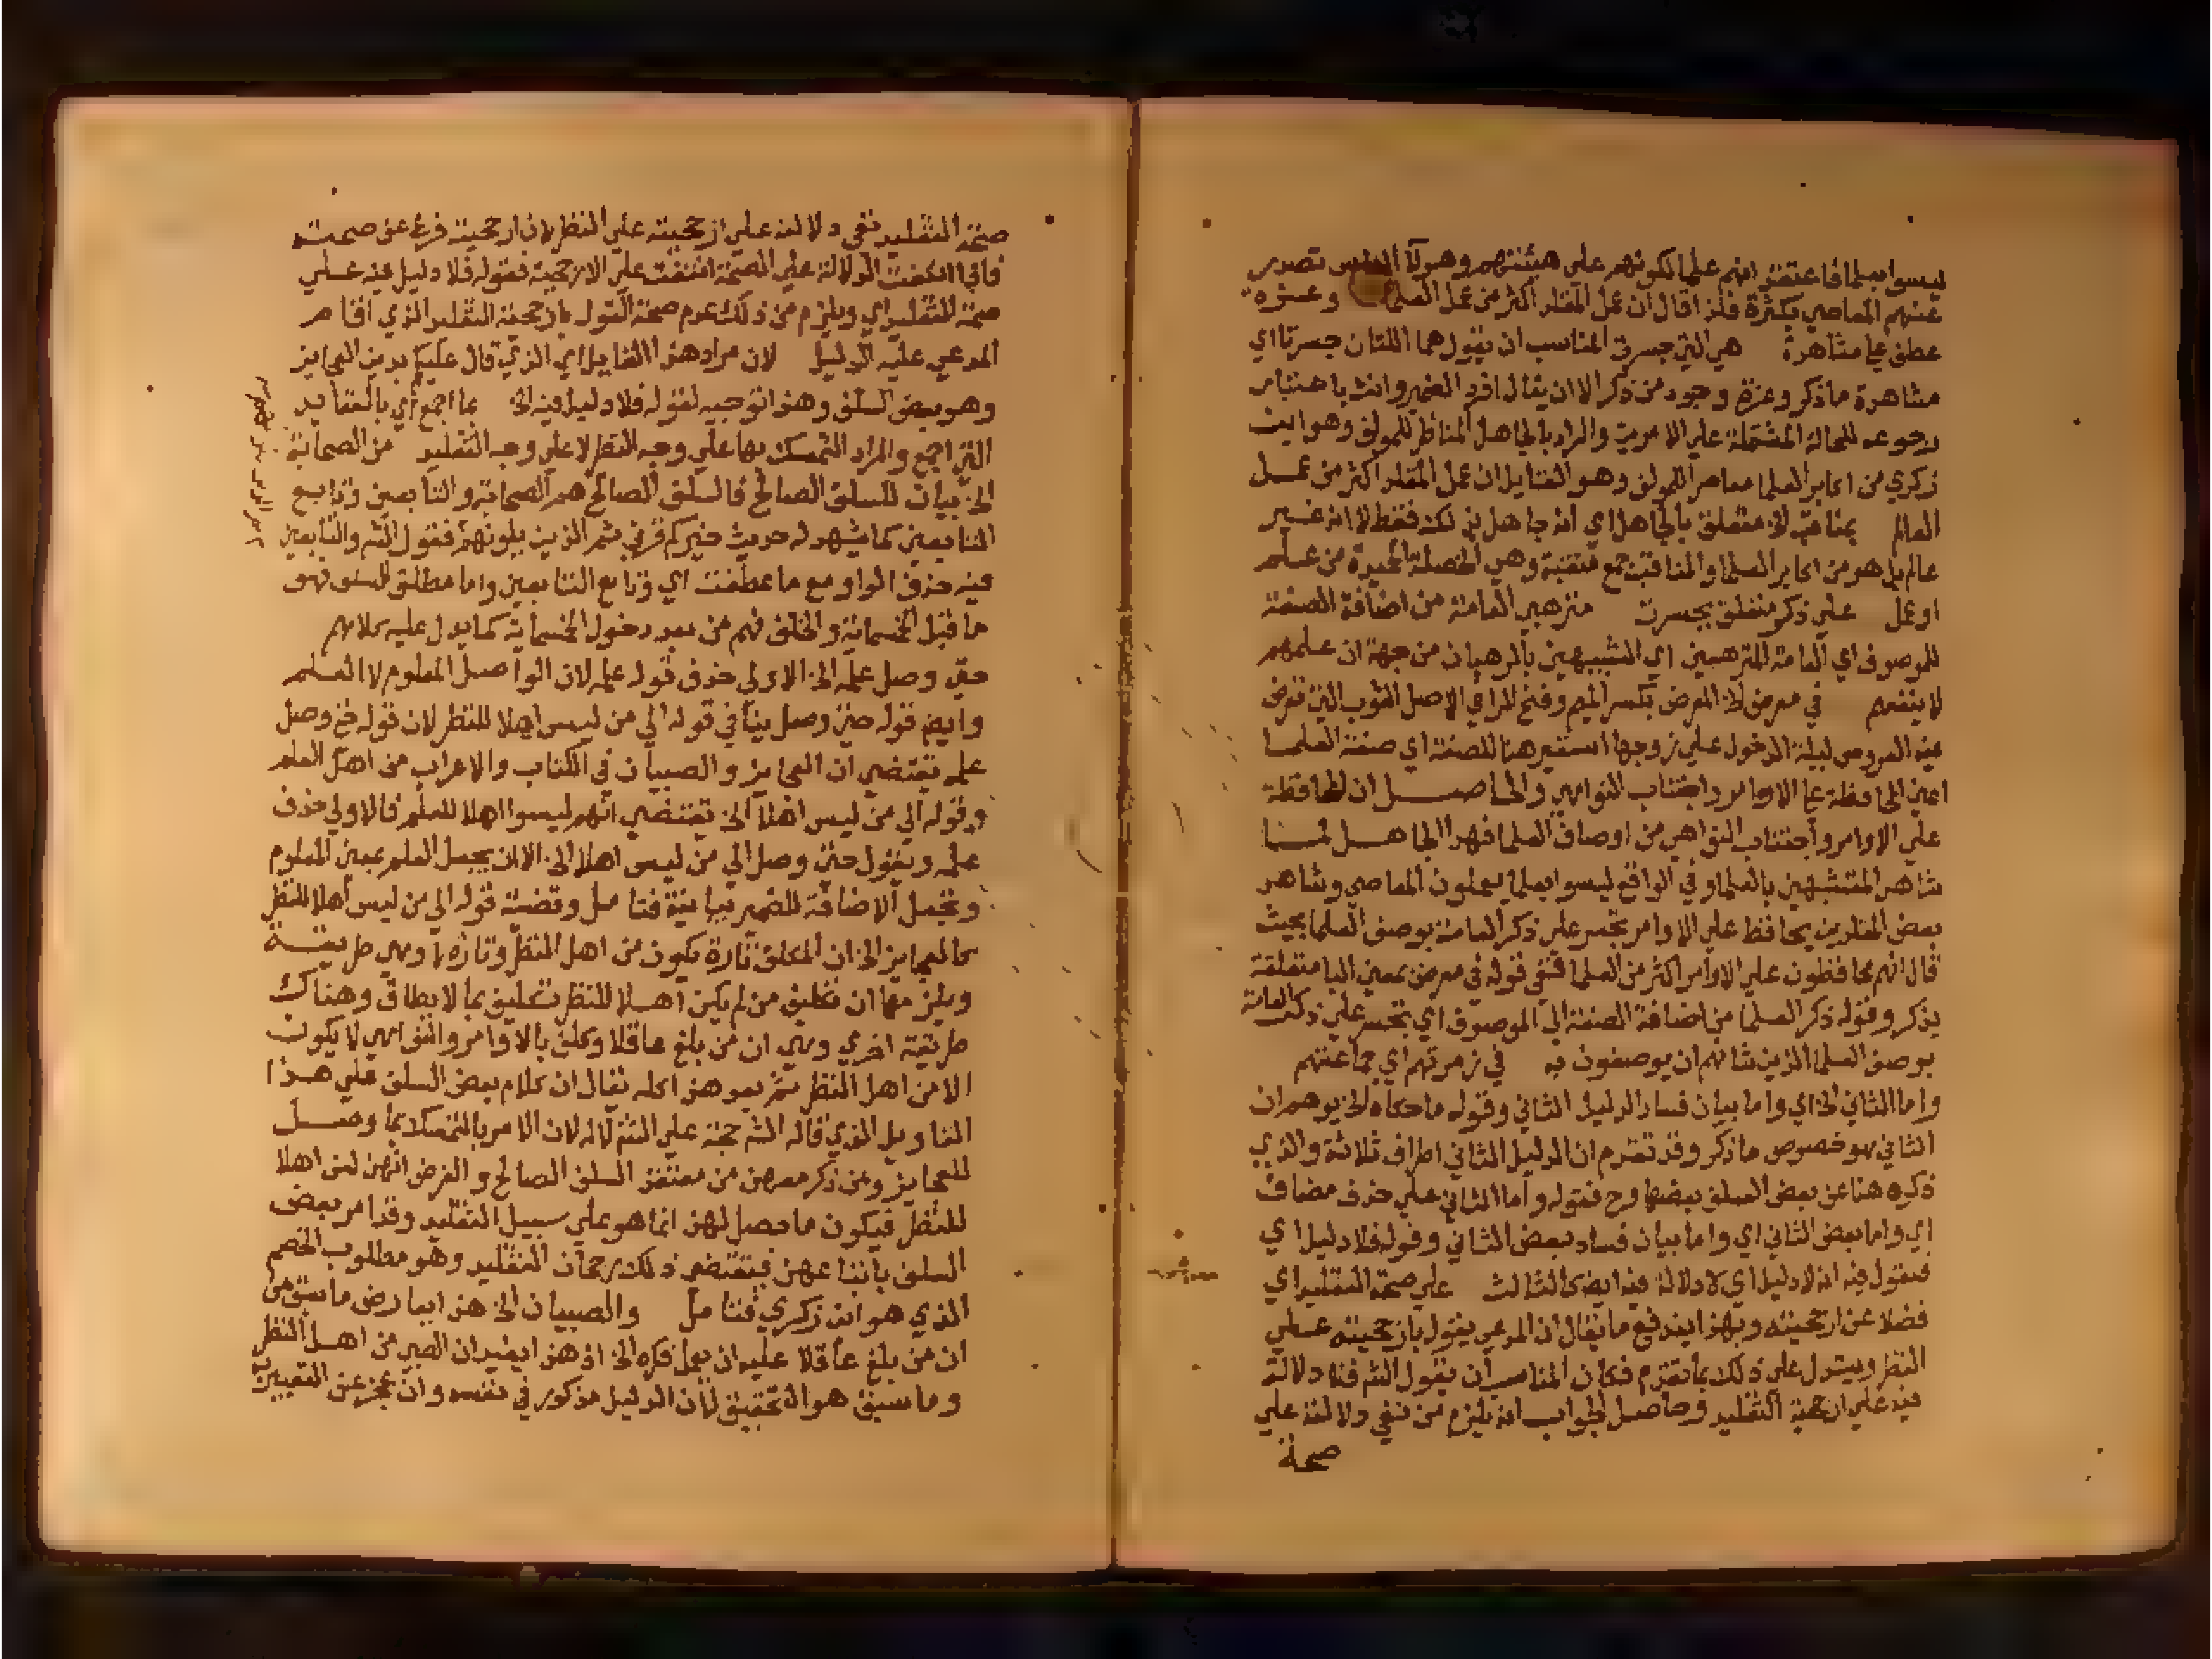 ليسوا بعلما فاعتقد انهم علما لكونهم على هيئتهم وهولا الناس تصدر
عنهم المعاصي بكثرة فلذا قال ان عمل المقلد اكثر من عمل العلما وعزة
عطف على مشاهدة هي التي جسرت المناسب ان يقول هما اللتان جسرتا اي
مشاهدة ما ذكر وعزة وجود من ذكر الا ان يقال افرد الضمير وانث باعتبار
رجوعه للحالة المشتملة على الامرين والمراد بالجاهل المناظر للمولف وهو ابن
زكري من اكابر العلما معاصر للمولف وهو القايل ان عمل المقلد اكثر من عمل
العالم بمناقبه لا متعلق بالجاهل اي انه جاهل بذلك فقط لا انه غير
عالم بل هو من اكابر العلما والمناقب جمع منقبة وهي الخصلة الحميدة من علم
او عمل على ذكر متعلق بجسرت مترهبي العامة من اضافة الصفة
للموصوف اي العامة المترهبين اي المشبهين بالرهبان من جهة ان علمهم
لا ينفعهم في معرض الخ المعرض بكسر الميم وفتح الرا في الاصل الثوب الذي تعرض
فيه العروس ليلة الدخول على زوجها استعير هنا للصفة اي صفة العلما
اعني المحافظة على الاوامر واجتناب النواهي والحاصل ان المحافظة
على الاوامر واجتناب النواهي من اوصاف العلما فهذا الجاهل لما
شاهد المتشبهين بالعلما وفي الواقع ليسوا بعلما يعملون المعاصي وشاهد
بعض المقلدين يحافظ على الاوامر تجسر على ذكر العامة بوصف العلما بحيث
قال انهم محافظون على الاوامر اكثر من العلما ففي قوله في معرض بمعنى البا متعلقة
بذكر وقوله ذكر العلما من اضافة الصفة الى الموصوف اي تجسر على ذكر العامة
بوصف العلما الذين شانهم ان يوصفون به في زمرتهم اي جماعتهم
واما الثاني الخ اي واما بيان فساد الدليل الثاني وقوله ما حكاه الخ يوهم ان
الثاني هو خصوص ما ذكر وقد تقدم ان الدليل الثاني اطراف ثلاثة والذي
ذكره هنا عن بعض السلف بعضها وح فقوله واما الثاني على حذف مضاف
اي واما بعض الثاني اي واما بيان فساد بعض الثاني وقوله فلا دليل اي
فنقول فيه انه لا دليل اي لا دلالة فيه ايضا كالثالث على صحة التقليد اي
فضلا عن ارجحيته وبهذا يندفع ما يقال ان المدعي يقول بارجحيته على
النظر ويستدل على ذلك بما تقدم فكان المناسب ان يقول الشم فلا دلالة
فيه على ارجحية التقليد وحاصل الجواب انه يلزم من نفي دلالته على
صحة
صحة التقليد نفي دلالته على ارجحيته على النظر لان ارجحيته فرع عن صحته
فاذا انتفت الدلالة على الصحة انتفت على الارجحية فقوله فلا دليل فيه على
صحة التقليد اي ويلزم من ذلك عدم صحة القول بارجحية التقليد الذي اقام
المدعي عليه الدليل لان مراد هذا القايل اي الذي قال عليكم بدين العجايز
وهو بعض السلف وهذا توجيه لقوله فلا دليل فيه الخ ما اجمع اي بالعقايد
التي اجمع والمراد التمسك بها على وجه النظر لا على وجه التقليد من الصحابة
الخ بيان للسلف الصالح فالسلف الصالح هم الصحابة والتابعين وتابع
التابعين كما يشهد له حديث خيركم قرني ثم الذين يلونهم فقول الشم والتابعين
فيه حذف الواو مع ما عطفت اي وتابع التابعين واما مطلق السلف فهو
ما قبل الخمسماية والخلف فهم من بعد دخول الخمسماية كما يدل عليه كلامهم
حتى وصل علمه الخ الاولى حذف قوله علمه لان الواصل المعلوم لا العلم
وايضا قوله حتى وصل ينافي قوله الى من ليس اهلا للنظر لان قوله حتى وصل
علمه يقتضي ان العجايز والصبيان في الكتاب والاعراب من اهل العلم
وقوله الى من ليس اهلا الخ يقتضي انهم ليسوا اهلا للعلم فالاولى حذف
علمه ويقول حتى وصل الى من ليس اهلا الخ الا ان يجعل العلم بمعنى المعلوم
وتجعل الاضافة للضمير بيانية فتامل وقضية قوله الى من ليس اهلا للنظر
كالعجايز الخ ان المكلف تارة يكون من اهل النظر وتارة لا وهي طريقة
ويلزمها ان تكليف من لم يكن اهلا للنظر تكليف بما لا يطاق وهناك
طريقة اخرى وهي ان من بلغ عاقلا وكلف بالاوامر والنواهي لا يكون
الا من اهل النظر ثم بعد هذا كله يقال ان كلام بعض السلف على هذا
التاويل الذي قاله الشم حجة على الشم لا له لان الامر بالتمسك بما وصل
للعجايز ومن ذكر معهن من معتقد السلف الصالح والفرض انهن لسن اهلا
للنظر فيكون ما حصل لهن انما هو على سبيل التقليد وقد امر بعض
السلف باتباعهن فيقتضي ذلك رجحان التقليد وهو مطلوب الخصم
الذي هو ابن زكري فتامل والصبيان الخ هذا يعارض ما سبق من
ان من بلغ عاقلا عليه ان يعمل فكره الخ اذ هذا يفيد ان الصبي من اهل النظر
وما سبق هو التحقيق لان الدليل مذكور في نفسه وان عجز عن التعبير